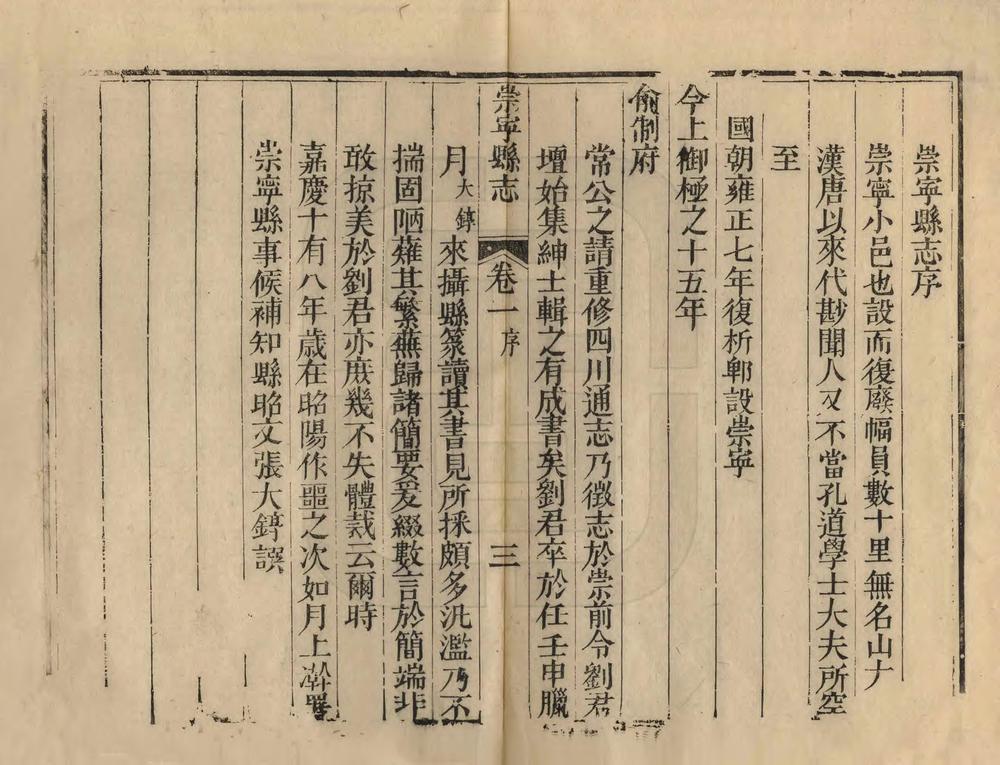 崇寧縣志序
崇寧小邑也設而復廢幅員數十里無名山大
漢唐以來代尠聞人又不當孔道學士大夫所罕
至
國朝雍正七年復析郫設崇寧
今上御極之十五年
俞制府
常公之請重修四川通志乃徵志於崇前令劉君
壇始集紳士輯之有成書矣劉君卒於任壬申臘
崇寧縣志 卷一 序 三
月大鏄來攝縣篆讀其書見所採頗多汎濫乃不
揣固陋薙其繁蕪歸諸簡要爰綴數言於簡端非
敢掠美於劉君亦庶幾不失體裁云爾時
嘉慶十有八年歲在昭陽作噩之次如月上澣署
崇寧縣事候補知縣昭文張大鏄譔